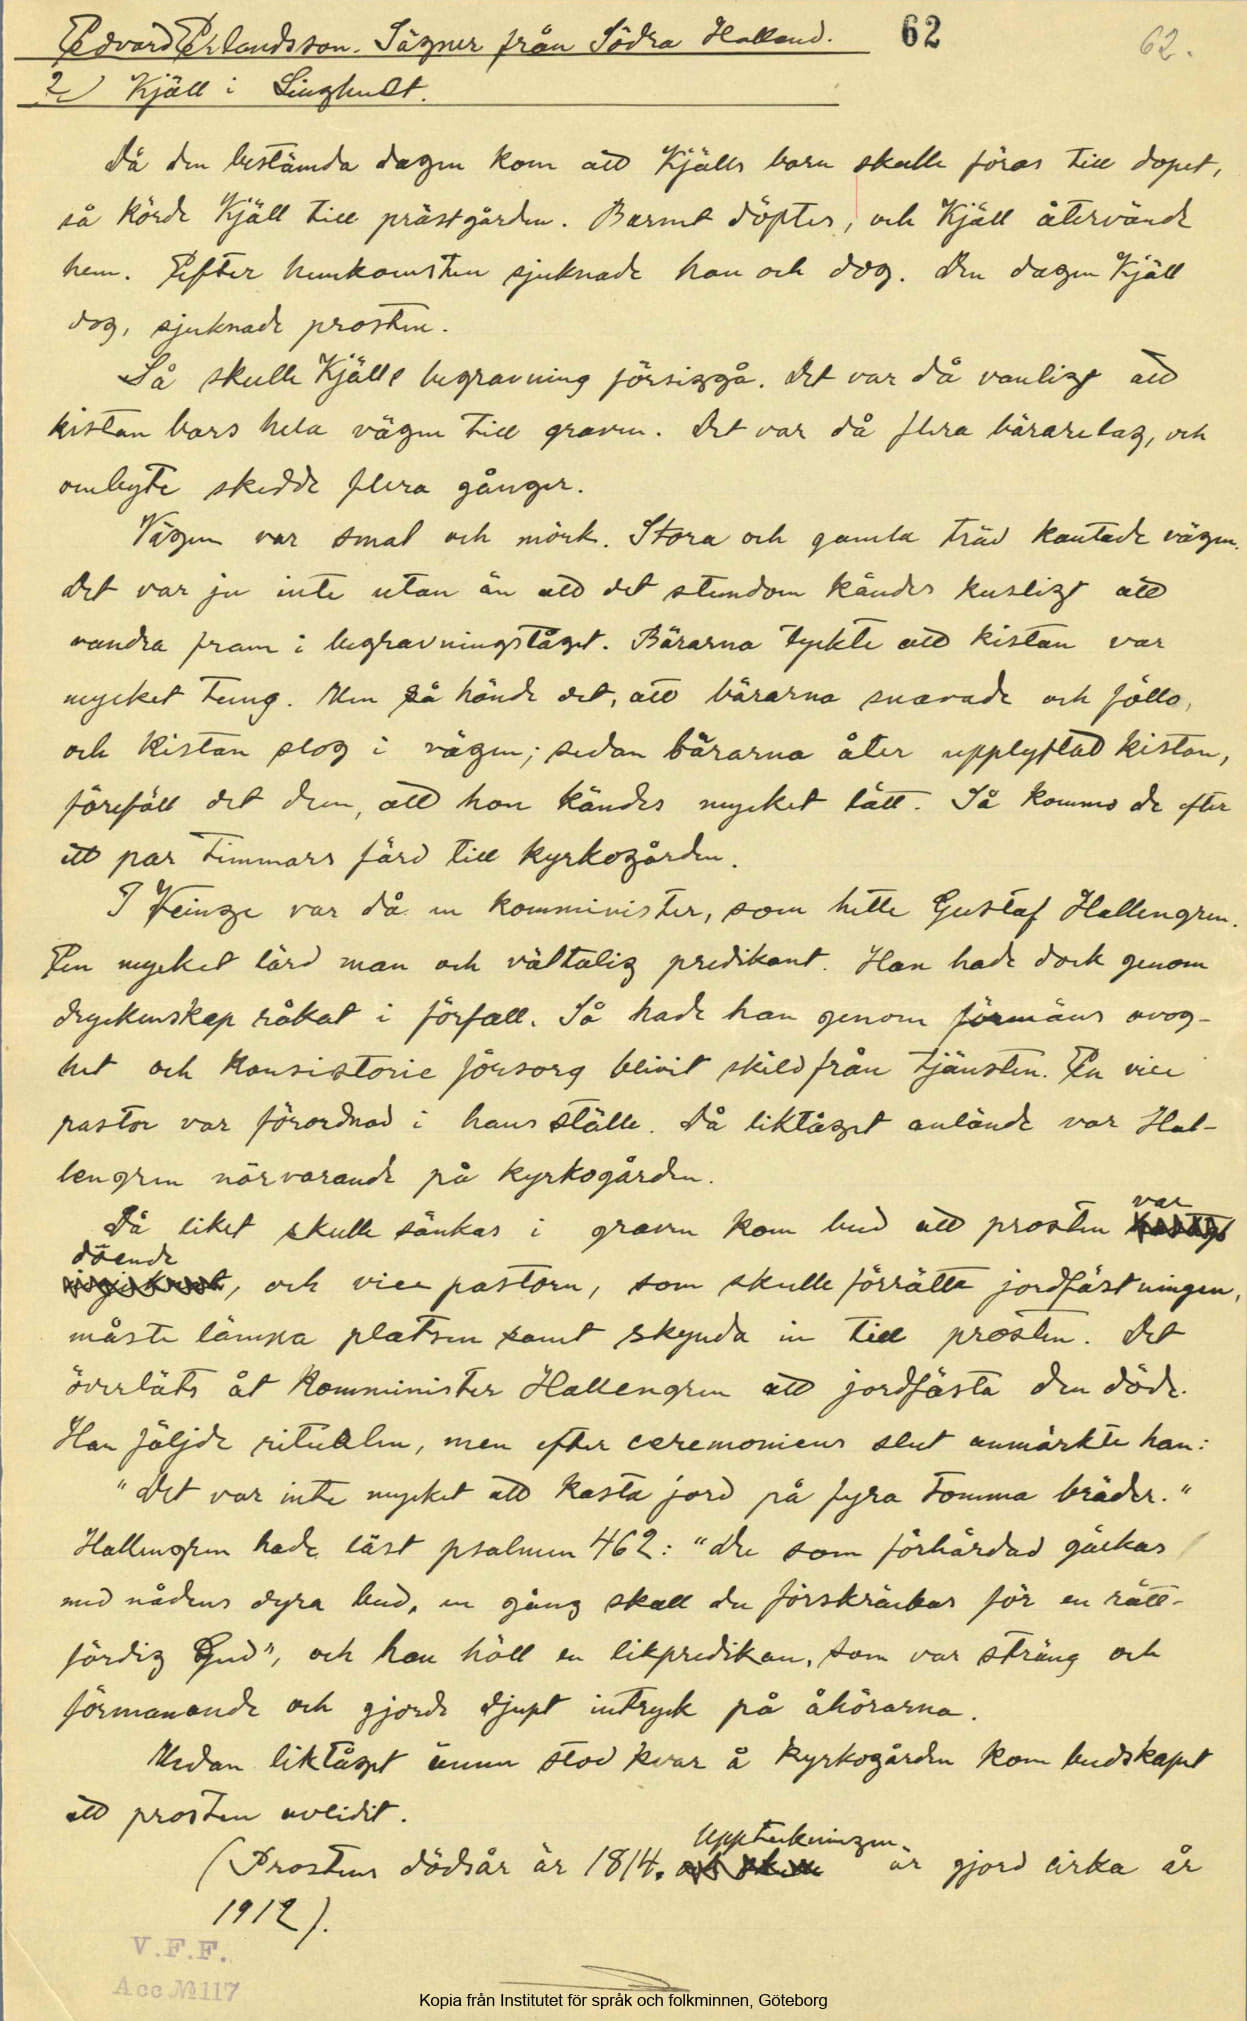 Edvard Erlandsson. Sägner från Södra Halland. 62 62.
2) Kjäll i Linghult.
Då den bestämda dagen kom att Kjälls barn skulle föras till dopet,
så körde Kjäll till prästgården. Barnet döptes, och Kjäll återvände
hem. Efter hemkomsten sjuknade han och dog. Den dagen Kjäll
dog, sjuknade prosten.
Så skulle Kjälls begravning försiggå. Det var då vanligt att
kistan bars hela vägen till graven. Det var då flera bärarelag, och
ombyte skedde flera gånger.
Vägen var smal och mörk. Stora och gamla träd kantade vägen.
Det var ju inte utan än att det stundom kändes kusligt att
vandra fram i begravningståget. Bärarna tyckte att kistan var
mycket tung. Men så hände det, att bärarna snavade och föllo,
och kistan slog i vägen; sedan bärarna åter upplyftat kistan,
föreföll det dem, att hon kändes mycket lätt. Så kommo de efter
ett par timmars färd till kyrkogården.
I Veinge var då en komminister, som hette Gustaf Hallengren.
En mycket lärd man och vältalig predikant. Han hade dock genom
dryckenskap råkat i förfall. Så hade han genom förmäns avog-
het och konsistorie försorg blivit skild från tjänsten. En vice
pastor var förordnad i hans ställe. Då liktåget anlände var Hal-
lengren närvarande på kyrkogården.
Då liket skulle sänkas i graven kom bud att prosten var
döende, och vice pastorn, som skulle förrätta jordfästningen,
måste lämna platsen samt skynda in till prosten. Det
överläts åt komminister Hallengren att jordfästa den döde.
Han följde ritualen, men efter ceremoniens slut anmärkte han:
"Det var inte mycket att kasta jord på fyra tomma bräder."
Hallengren hade läst psalmen 462: "Du som förhärdad gäckas
med nådens dyra bud, en gång skall du förskräckas för en rätt-
färdig Gud", och han höll en likpredikan, som var sträng och
förmanande och gjorde djupt intryck på åhörarna.
Medan liktåget ännu stod kvar å kyrkogården kom budskapet
att prosten avlidit.
(Prostens dödsår är 1814. Uppteckningen är gjord cirka år
1912).
V.F.F.
Acc № 117
Kopia från Institutet för språk och folkminnen, Göteborg